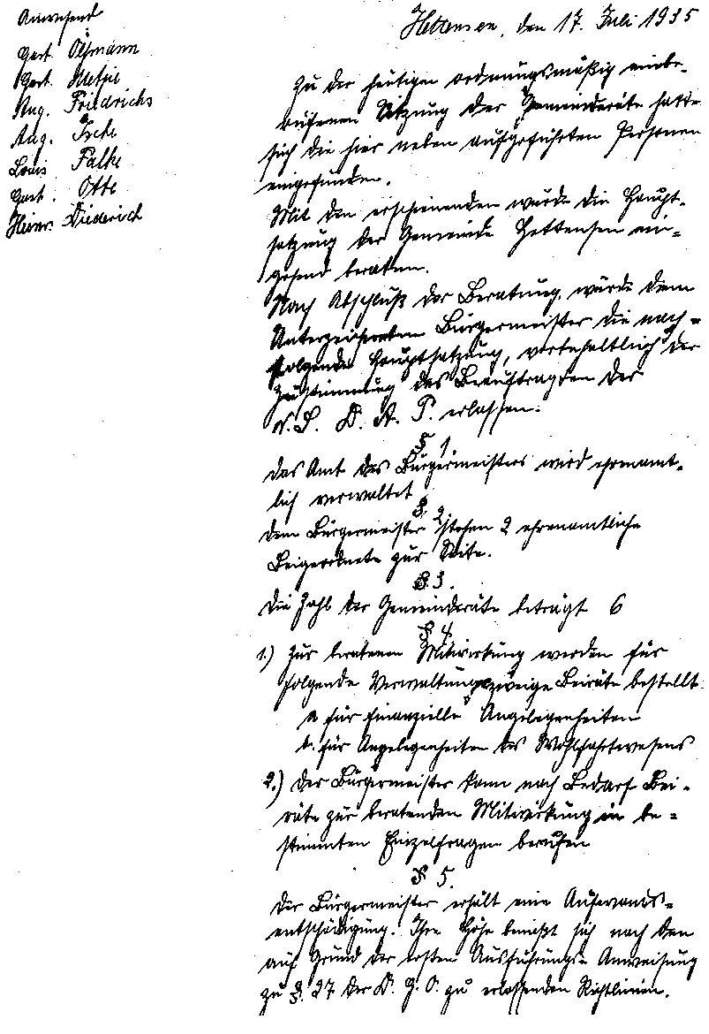 Anwesend
Gart. Ölfmann
Gart.
Aug. Friedrichs
Aug.
Louis Falke
Gart. Otte
Heinr. Diederich
Hettensen, den 17. Juli 1935
Zu der heutigen ordnungsmäßig einbe-
rufenen Sitzung der Gemeinderäte hatte
sich die hier neben aufgeführten Personen
eingefunden.
Mit den erschienenden wurde die Haupt-
satzung der Gemeinde Hettensen ein-
gehend beraten.
Nach Abschluß der Beratung, wurde dem
Unterzeichneten Bürgermeister die nach-
folgende Hauptsatzung, vorbehaltlich der
Zustimmung des Beauftragten der
N. S. D. A. P. erlassen:
§ 1
Das Amt des Bürgermeisters wird ehrenamt-
lich verwaltet
§. 2.
Dem Bürgermeister stehen 2 ehrenamtliche
Beigeordnete zur Seite.
§. 3.
Die Zahl der Gemeinderäte beträgt 6
§ 4.
1.) Zur beratenen Mitwirkung werden für
folgende Verwaltungszweige Beiräte bestellt:
a für finanzielle Angelegenheiten
b. für Angelegenheiten des Wohlfahrtwesens
2.) Der Bürgermeister kann nach Bedarf Bei-
räte zur beratenden Mitwirkung in be-
stimmten Einzelfragen berufen
§ 5.
Der Bürgermeister erhält eine Aufwands-
entschädigung. Ihre Höhe bemißt sich nach den
auf Grund der ersten Ausführungs-Anweisung
zu §. 27 der D. G. O. zu erlassenden Richtlinien.